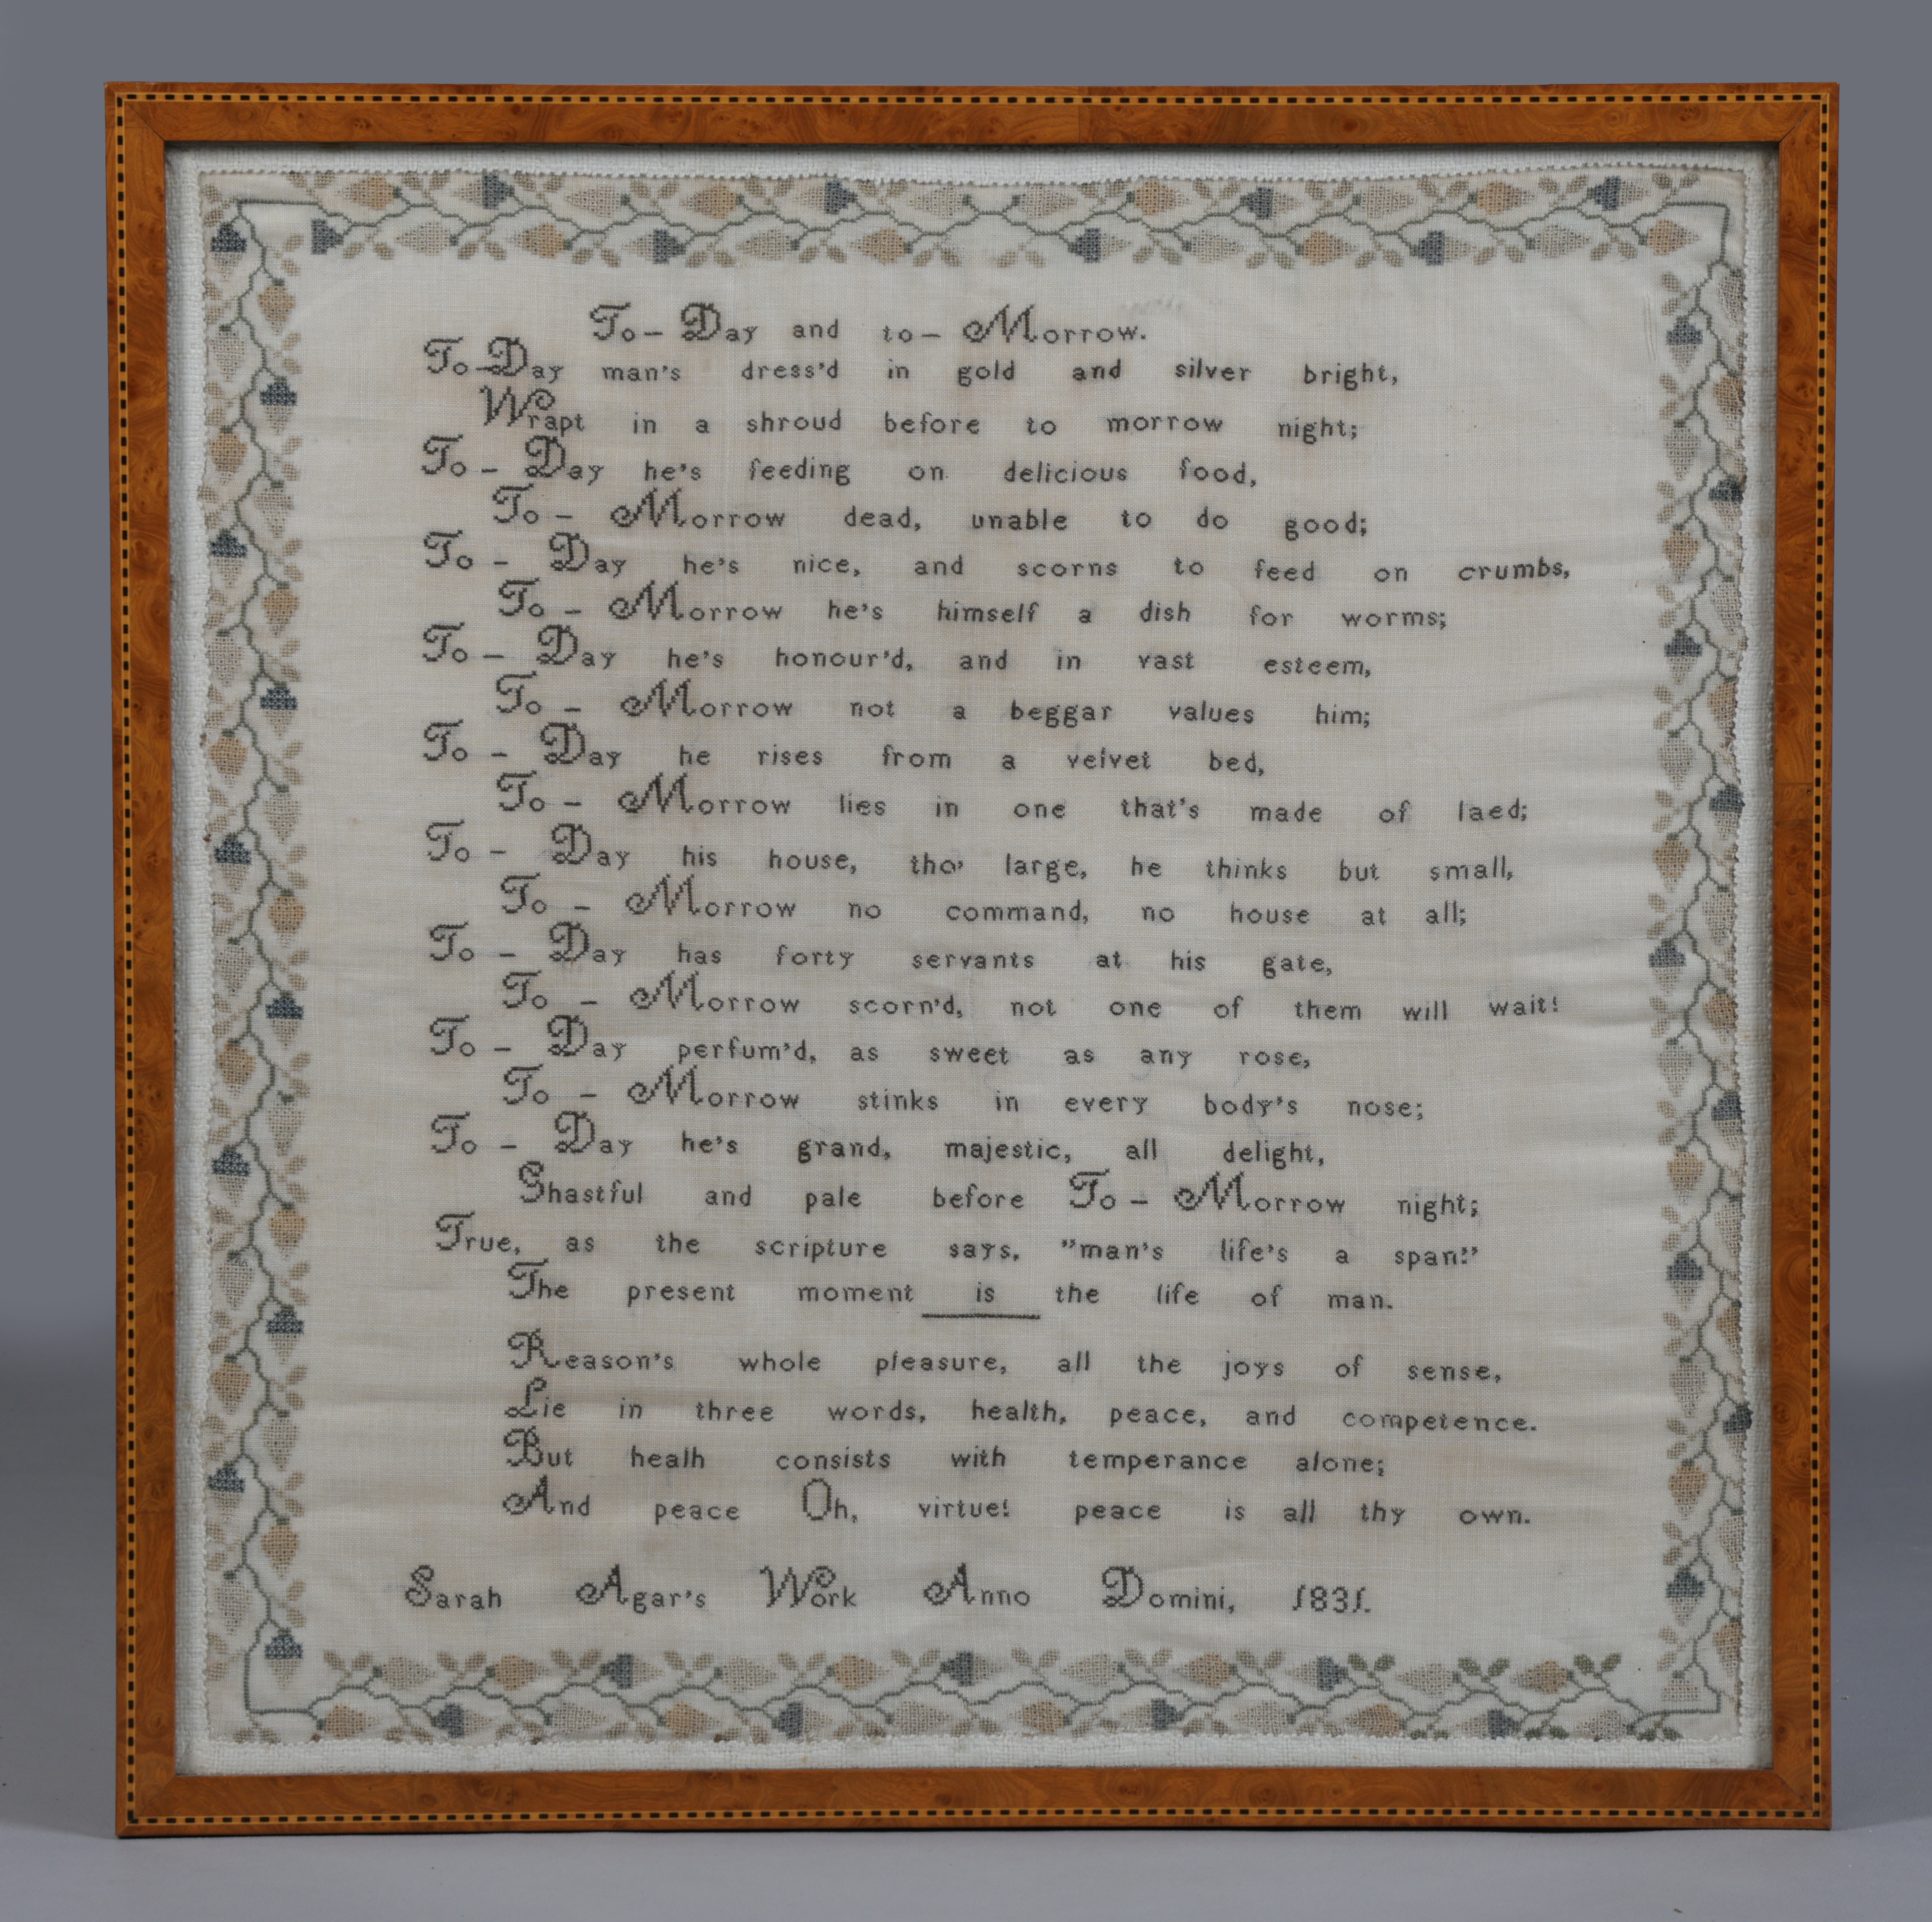 To-Day and to-Morrow.
To-Day man's dress'd in gold and silver bright,
Wrapt in a shroud before to morrow night;
To-Day he's feeding on delicious food,
To-Morrow dead, unable to do good;
To-Day he's nice, and scorns to feed on crumbs,
To-Morrow he's himself a dish for worms;
To-Day he's honour'd, and in vast esteem,
To-Morrow not a beggar values him;
To-Day he rises from a velvet bed,
To-Morrow lies in one that's made of laed;
To-Day his house, tho' large, he thinks but small,
To-Morrow no command, no house at all;
To-Day has forty servants at his gate,
To-Morrow scorn'd, not one of them will wait!
To-Day perfum'd, as sweet as any rose,
To-Morrow stinks in every body's nose;
To-Day he's grand, majestic, all delight,
Ghastful and pale before To-Morrow night;
True, as the scripture says, "man's life's a span!"
The present moment is the life of man.
Reason's whole pleasure, all the joys of sense,
Lie in three words, health, peace, and competence.
But healh consists with temperance alone;
And peace Oh, virtue! peace is all thy own.
Sarah Agar's Work Anno Domini, 1831.